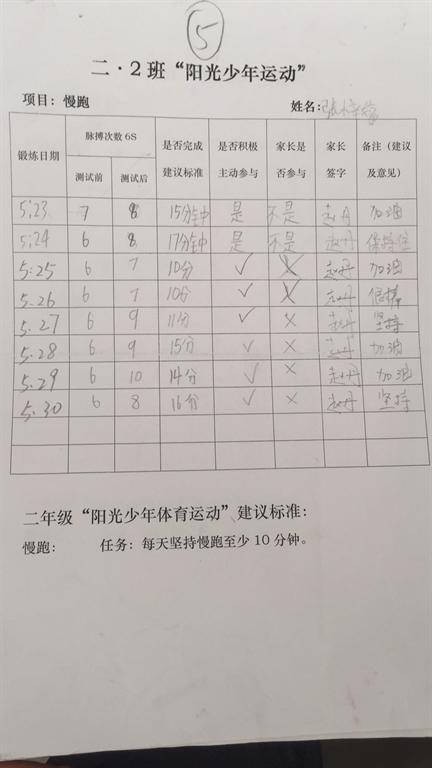 ⑤
二·2班“阳光少年运动”
项目：慢跑 姓名：张
锻炼日期 脉搏次数 6S 是否完成建议标准 是否积极主动参与 家长是否参与 家长签字 备注（建议及意见）
测试前 测试后
5:23 7 8 15分钟 是 不是 赵丹 加油
5:24 6 8 17分钟 是 不是 赵丹 保持住
5.25 6 7 10分 ✓ × 赵丹 加油
5.26 6 7 10分 ✓ × 赵丹
5.27 6 9 11分 ✓ × 赵丹 坚持
5.28 6 9 15分 ✓ × 赵丹 加油
5.29 6 10 14分 ✓ × 赵丹 加油
5.30 6 8 16分 ✓ × 赵丹 坚持
二年级“阳光少年体育运动”建议标准：
慢跑： 任务：每天坚持慢跑至少 10 分钟。